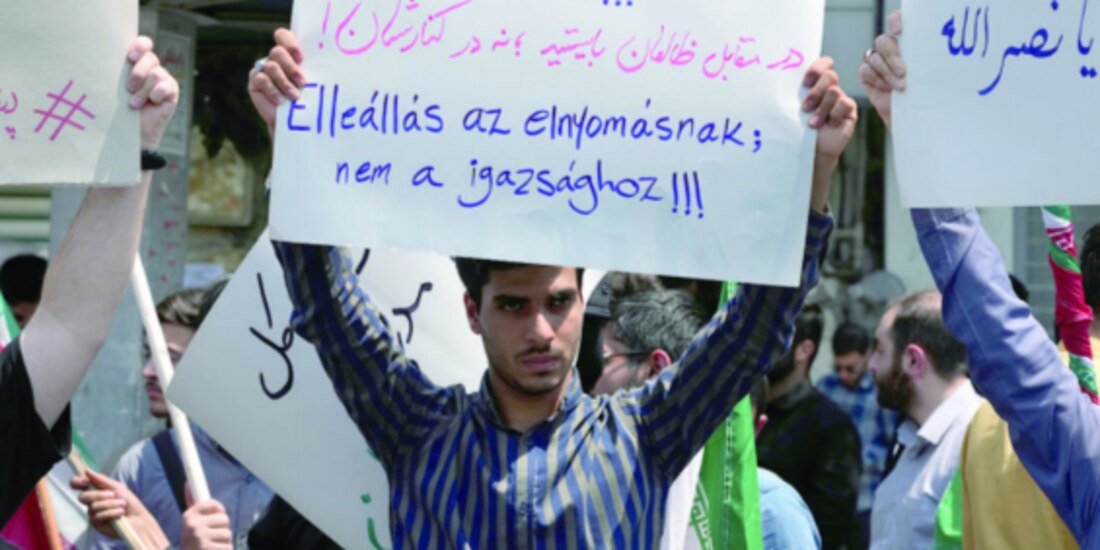 در مقابل ظالمان بایستید ؛ نه در کنارشان!
Elleállás az elnyomásnak;
nem a igazsághoz!!!
یا نصر الله
#